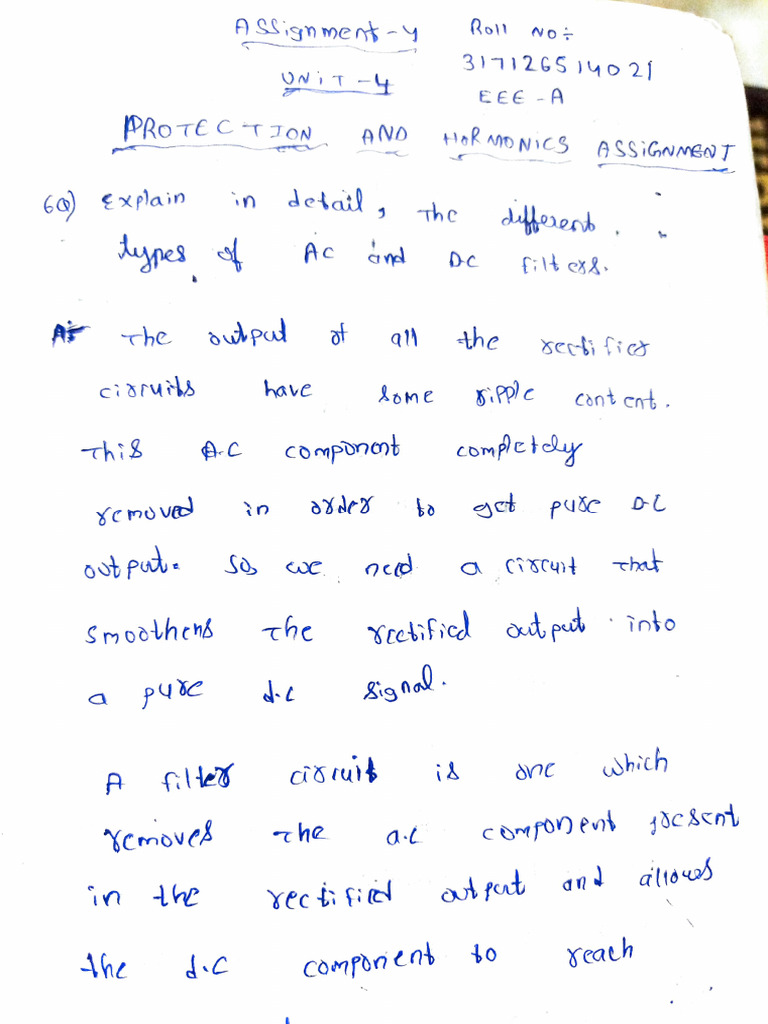 Assignment-4 Roll No:
UNIT-4 317126514021
EEE-A
PROTECTION AND HORMONICS ASSIGNMENT
6Q) Explain in detail, The different
types of AC and DC filters.
A:- The output of all the rectifier
circuits have some ripple content.
This A.C component completely
removed in order to get pure D.C
output. So we need a circuit that
smoothens the rectified output into
a pure d.c signal.
A filter circuit is one which
removes the a.c component present
in the rectified output and allows
the d.c component to reach